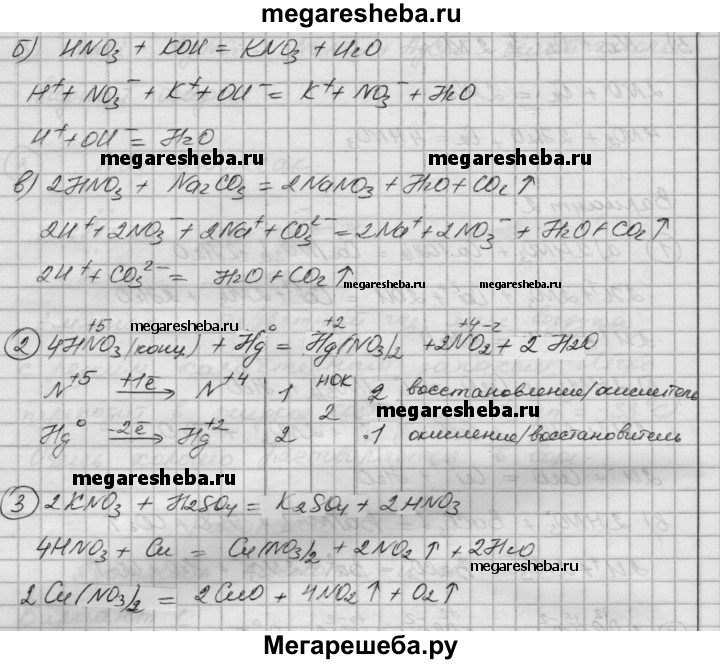 megaresheba.ru
б) HNO₃ + KOH = KNO₃ + H₂O
H⁺ + NO₃⁻ + K⁺ + OH⁻ = K⁺ + NO₃⁻ + H₂O
H⁺ + OH⁻ = H₂O
megaresheba.ru megaresheba.ru
в) 2HNO₃ + Na₂CO₃ = 2NaNO₃ + H₂O + CO₂↑
2H⁺ + 2NO₃⁻ + 2Na⁺ + CO₃²⁻ = 2Na⁺ + 2NO₃⁻ + H₂O + CO₂↑
2H⁺ + CO₃²⁻ = H₂O + CO₂↑ megaresheba.ru megaresheba.ru
megaresheba.ru
② 4HN⁺⁵O₃(конц) + Hg⁰ = Hg⁺²(NO₃)₂ + 2N⁺⁴O₂⁻² + 2H₂O
N⁺⁵ +1ē → N⁺⁴ | 1 | НОК | 2 восстановление/окислитель
2 megaresheba.ru
Hg⁰ -2ē → Hg⁺² | 2 | 1 окисление/восстановитель
megaresheba.ru
③ 2KNO₃ + H₂SO₄ = K₂SO₄ + 2HNO₃
4HNO₃ + Cu = Cu(NO₃)₂ + 2NO₂↑ + 2H₂O
megaresheba.ru
2Cu(NO₃)₂ = 2CuO + 4NO₂↑ + O₂↑
Мегарешеба.ру